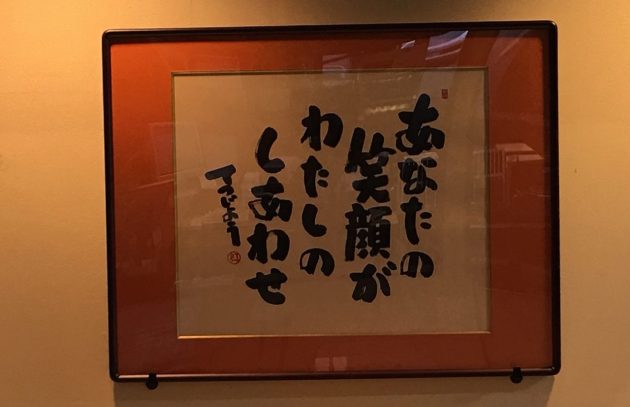 あなたの
笑顔が
わたしの
しあわせ
てつじょう